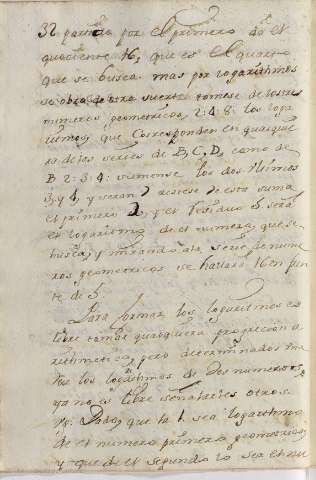 32 partida por el primero da el
quociente 16, que es el quarto
que se busca. mas por logaritmos
se obra de otra suerte tomese de los tres
numeros geometricos, 2: 4: 8: los loga
ritmos, que corresponden en qualquie
ra de las series de B, C, D, como de
B 2: 3: 4: sumense los dos ultimos
3, y 4, y seran 7 restese de esta suma
el primero 2, y el residuo 5 sera
el logaritmo de el numero, que se
busca, y mirando a la serie de nume
ros geometricos se hallará 16 en fren
te de 5.
Para formar los logaritmos es
libre tomar qualquiera progresion a
rithmetica, pero determinados
los logaritmos de dos numeros,
ya no es libre señalarles otros.
Dado, que la 1. sea logarithmo
de el numero primero geometrico,
y que de el segundo lo sea el nu